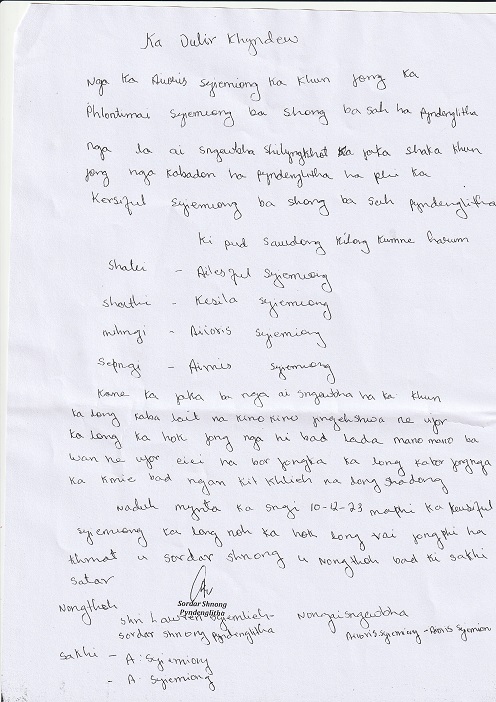 Ka Dulir Khyndew
Nga Ka Auoris Syiemiong Ka Khun Jong Ka
Phlontimai Syiemiong ba shong ba sah ha Pyndenglitha
nga la ai sngewbha shilyngkhot ka jaka shaka khun
jong nga kabadon ha Pyndenglitha ha phi ka
Kersiful Syiemiong ba shong ba sah Pyndenglitha
Ki pud sawdong kilong kumne harum
Shatei - Ailesful Syiemiong
Shathi - Kesila Syiemiong
mihngi - Auoris Syiemiong
Sepngi - Aimis Syiemiong
Kane ka jaka ba nga ai sngewbha ha ka khun
ka long kaba lait na kino kino jingehshwa ne ujor
ka long ka hok jong nga hi bad lada mano mano ba
wan ne ujor eiei na bor jongka ka long kabor jong nga
ka kmie bad ngan kit khlieh na dong shadong
Naduh mynta ka sngi 10-12-23 ma phi ka Kersiful
Syiemiong ka long noh ka hok long rai jong phi ha
khmat u sordar shnong u Nongthoh bad ki sakhi
Sordar Shnong
Pyndenglitha
Nongthoh
shri Syiemlieh - Nongaisngewbha
sordar shnong Pyndenglitha Auoris Syiemiong
Sakhi - A. Syiemiong
- A. Syiemiong